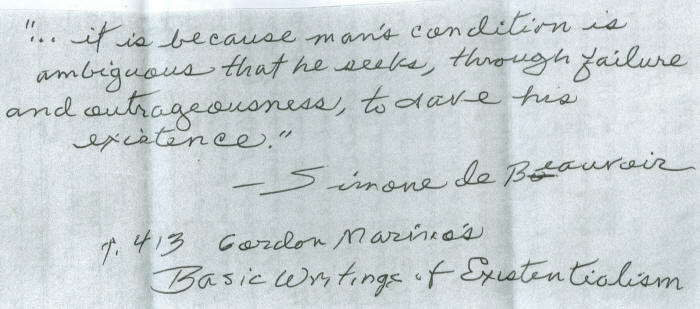 "... it is because man's condition is
ambiguous that he seeks, through failure
and outrageousness, to save his
existence."
— Simone de Beauvoir
p. 413 Gordon Marino's
Basic Writings of Existentialism